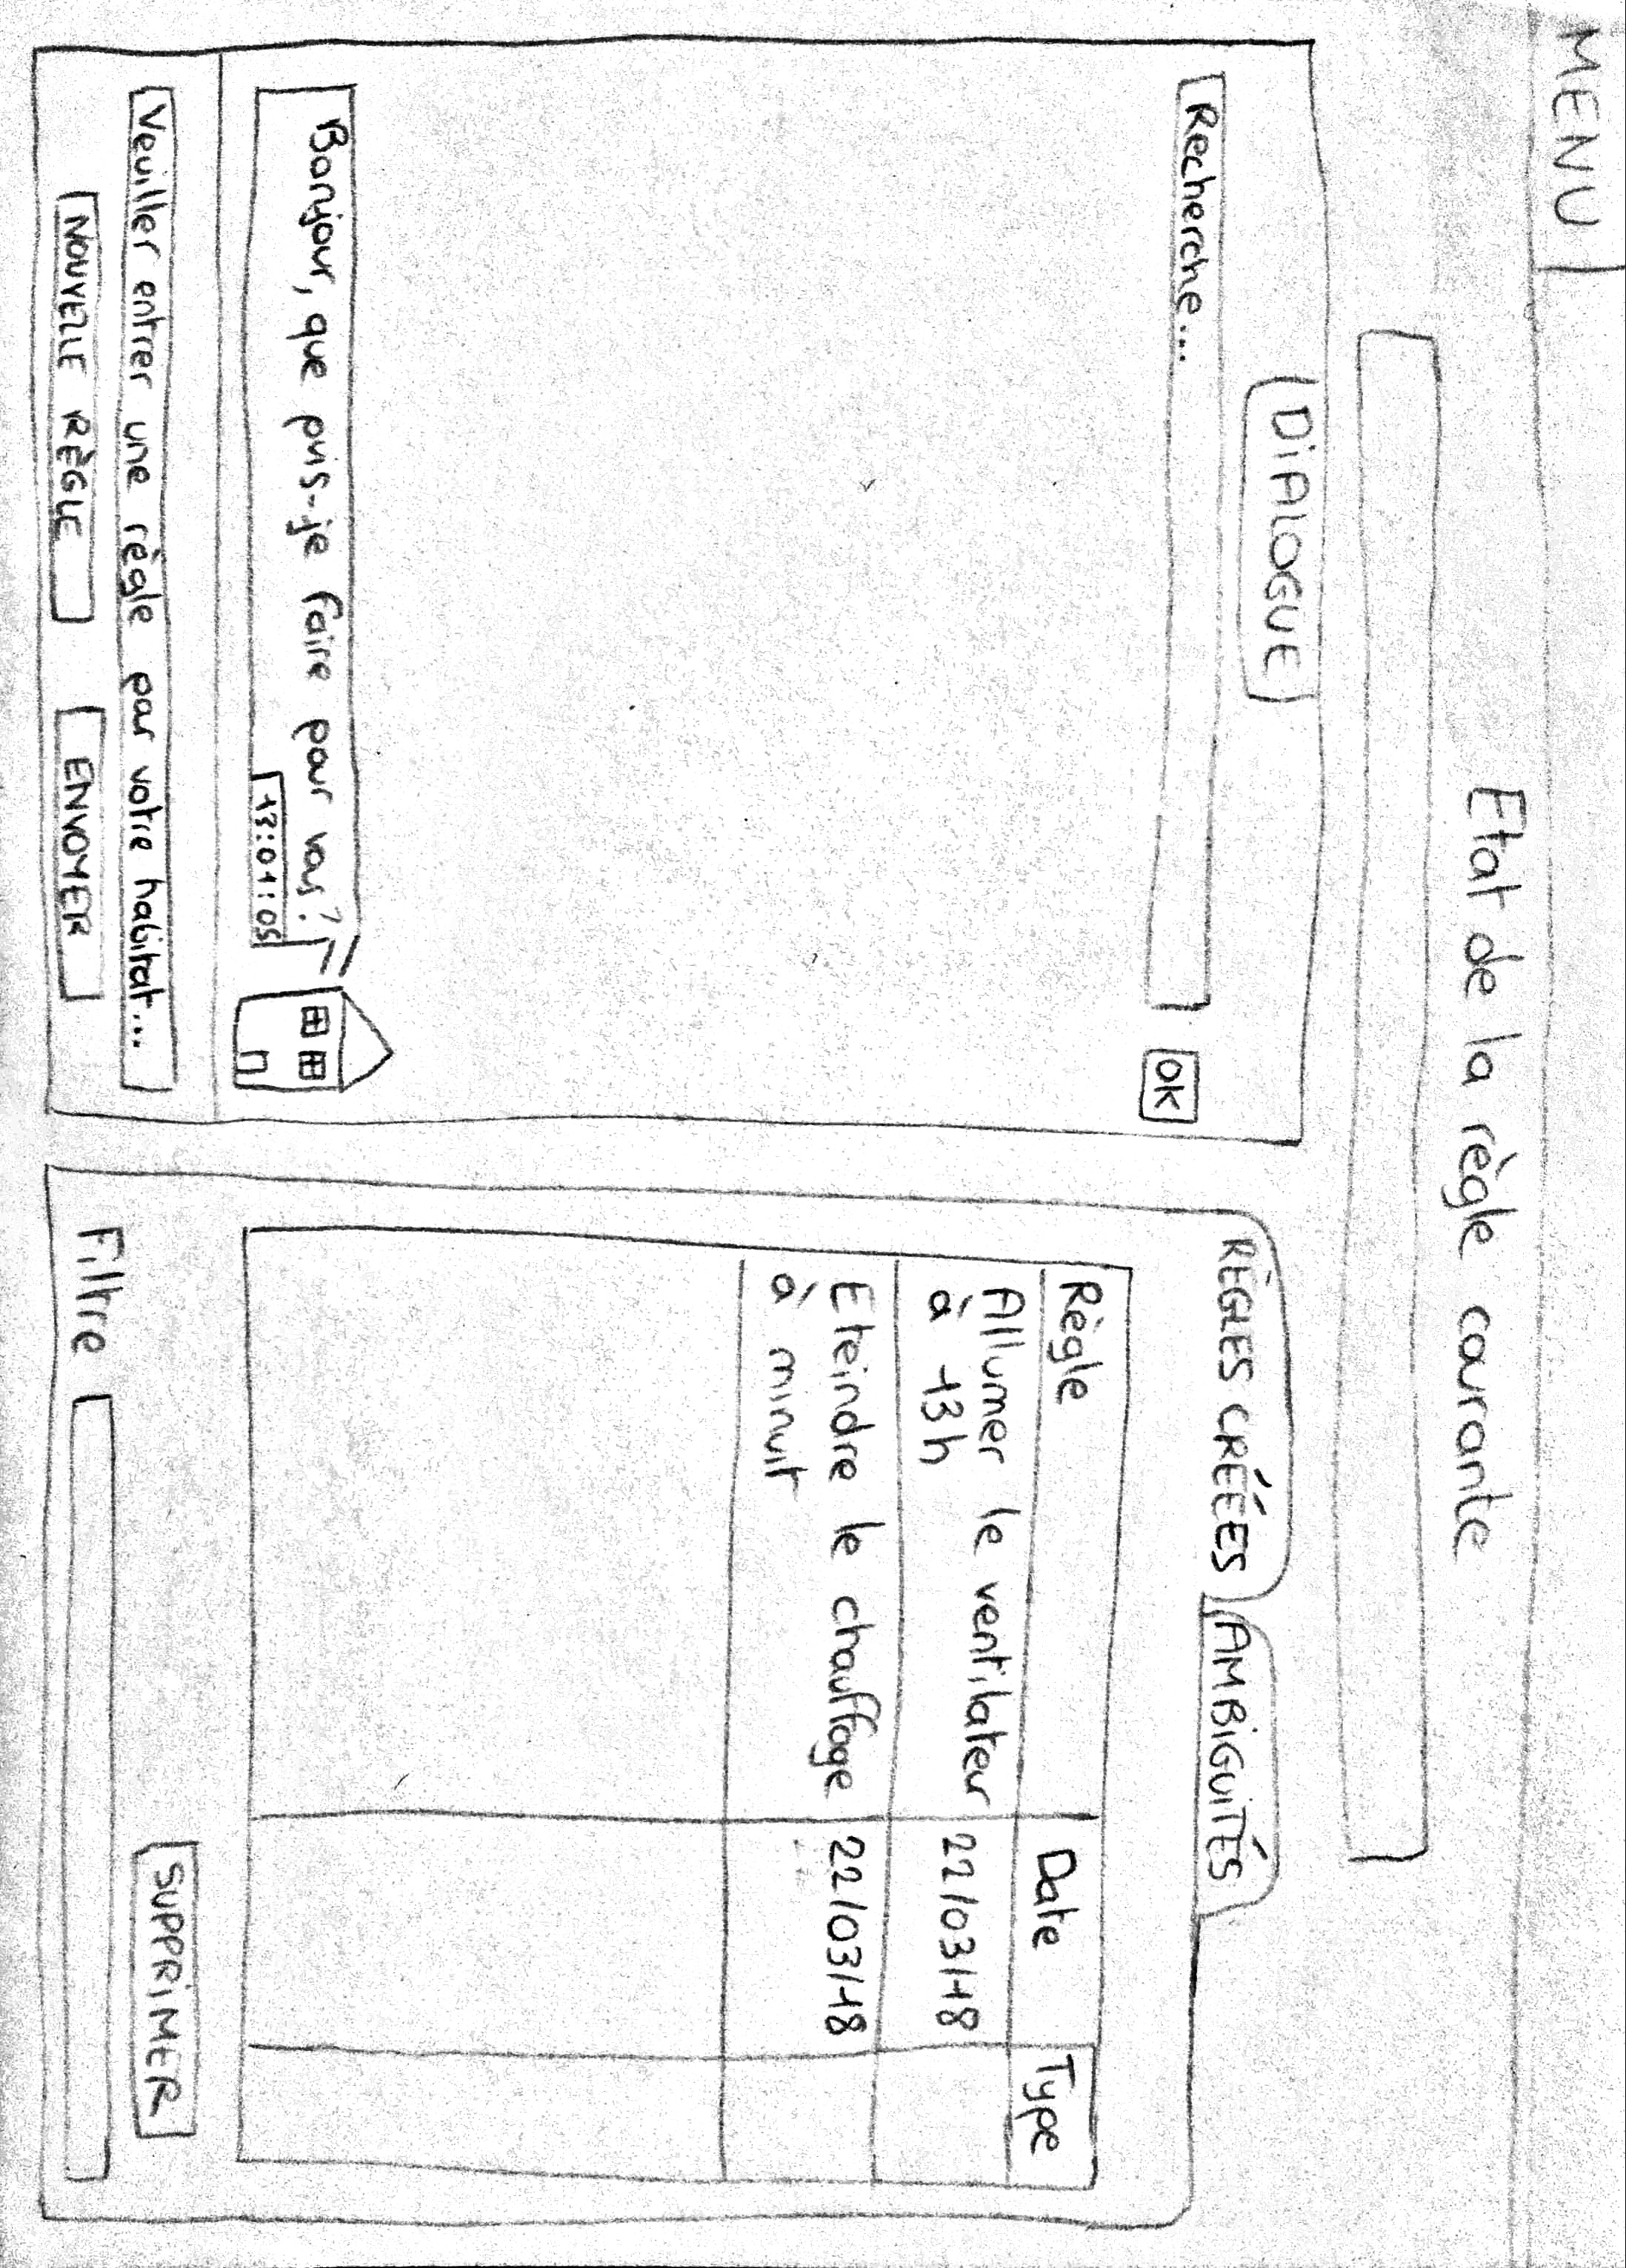 MENU
Etat de la règle courante
DIALOGUE
Recherche...
OK
Bonjour, que puis-je faire pour vous?
13:01:05
Veuiller entrer une règle par votre habitat...
NOUVELLE RÈGLE
ENVOYER
RÈGLES CRÉÉES
AMBIGUITÉS
Règle Date Type
Allumer le ventilateur 22/03/18
à 13h
Eteindre le chauffage 22/03/18
à minuit
SUPPRIMER
Filtre